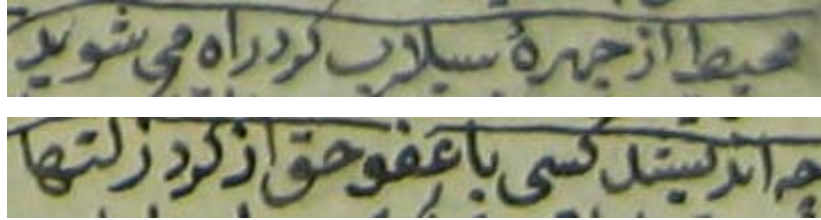 محیط از چهرهٔ سیلاب کرد راه می شوید
چه اندیشد کسی با عفو حق از کرد زلتها